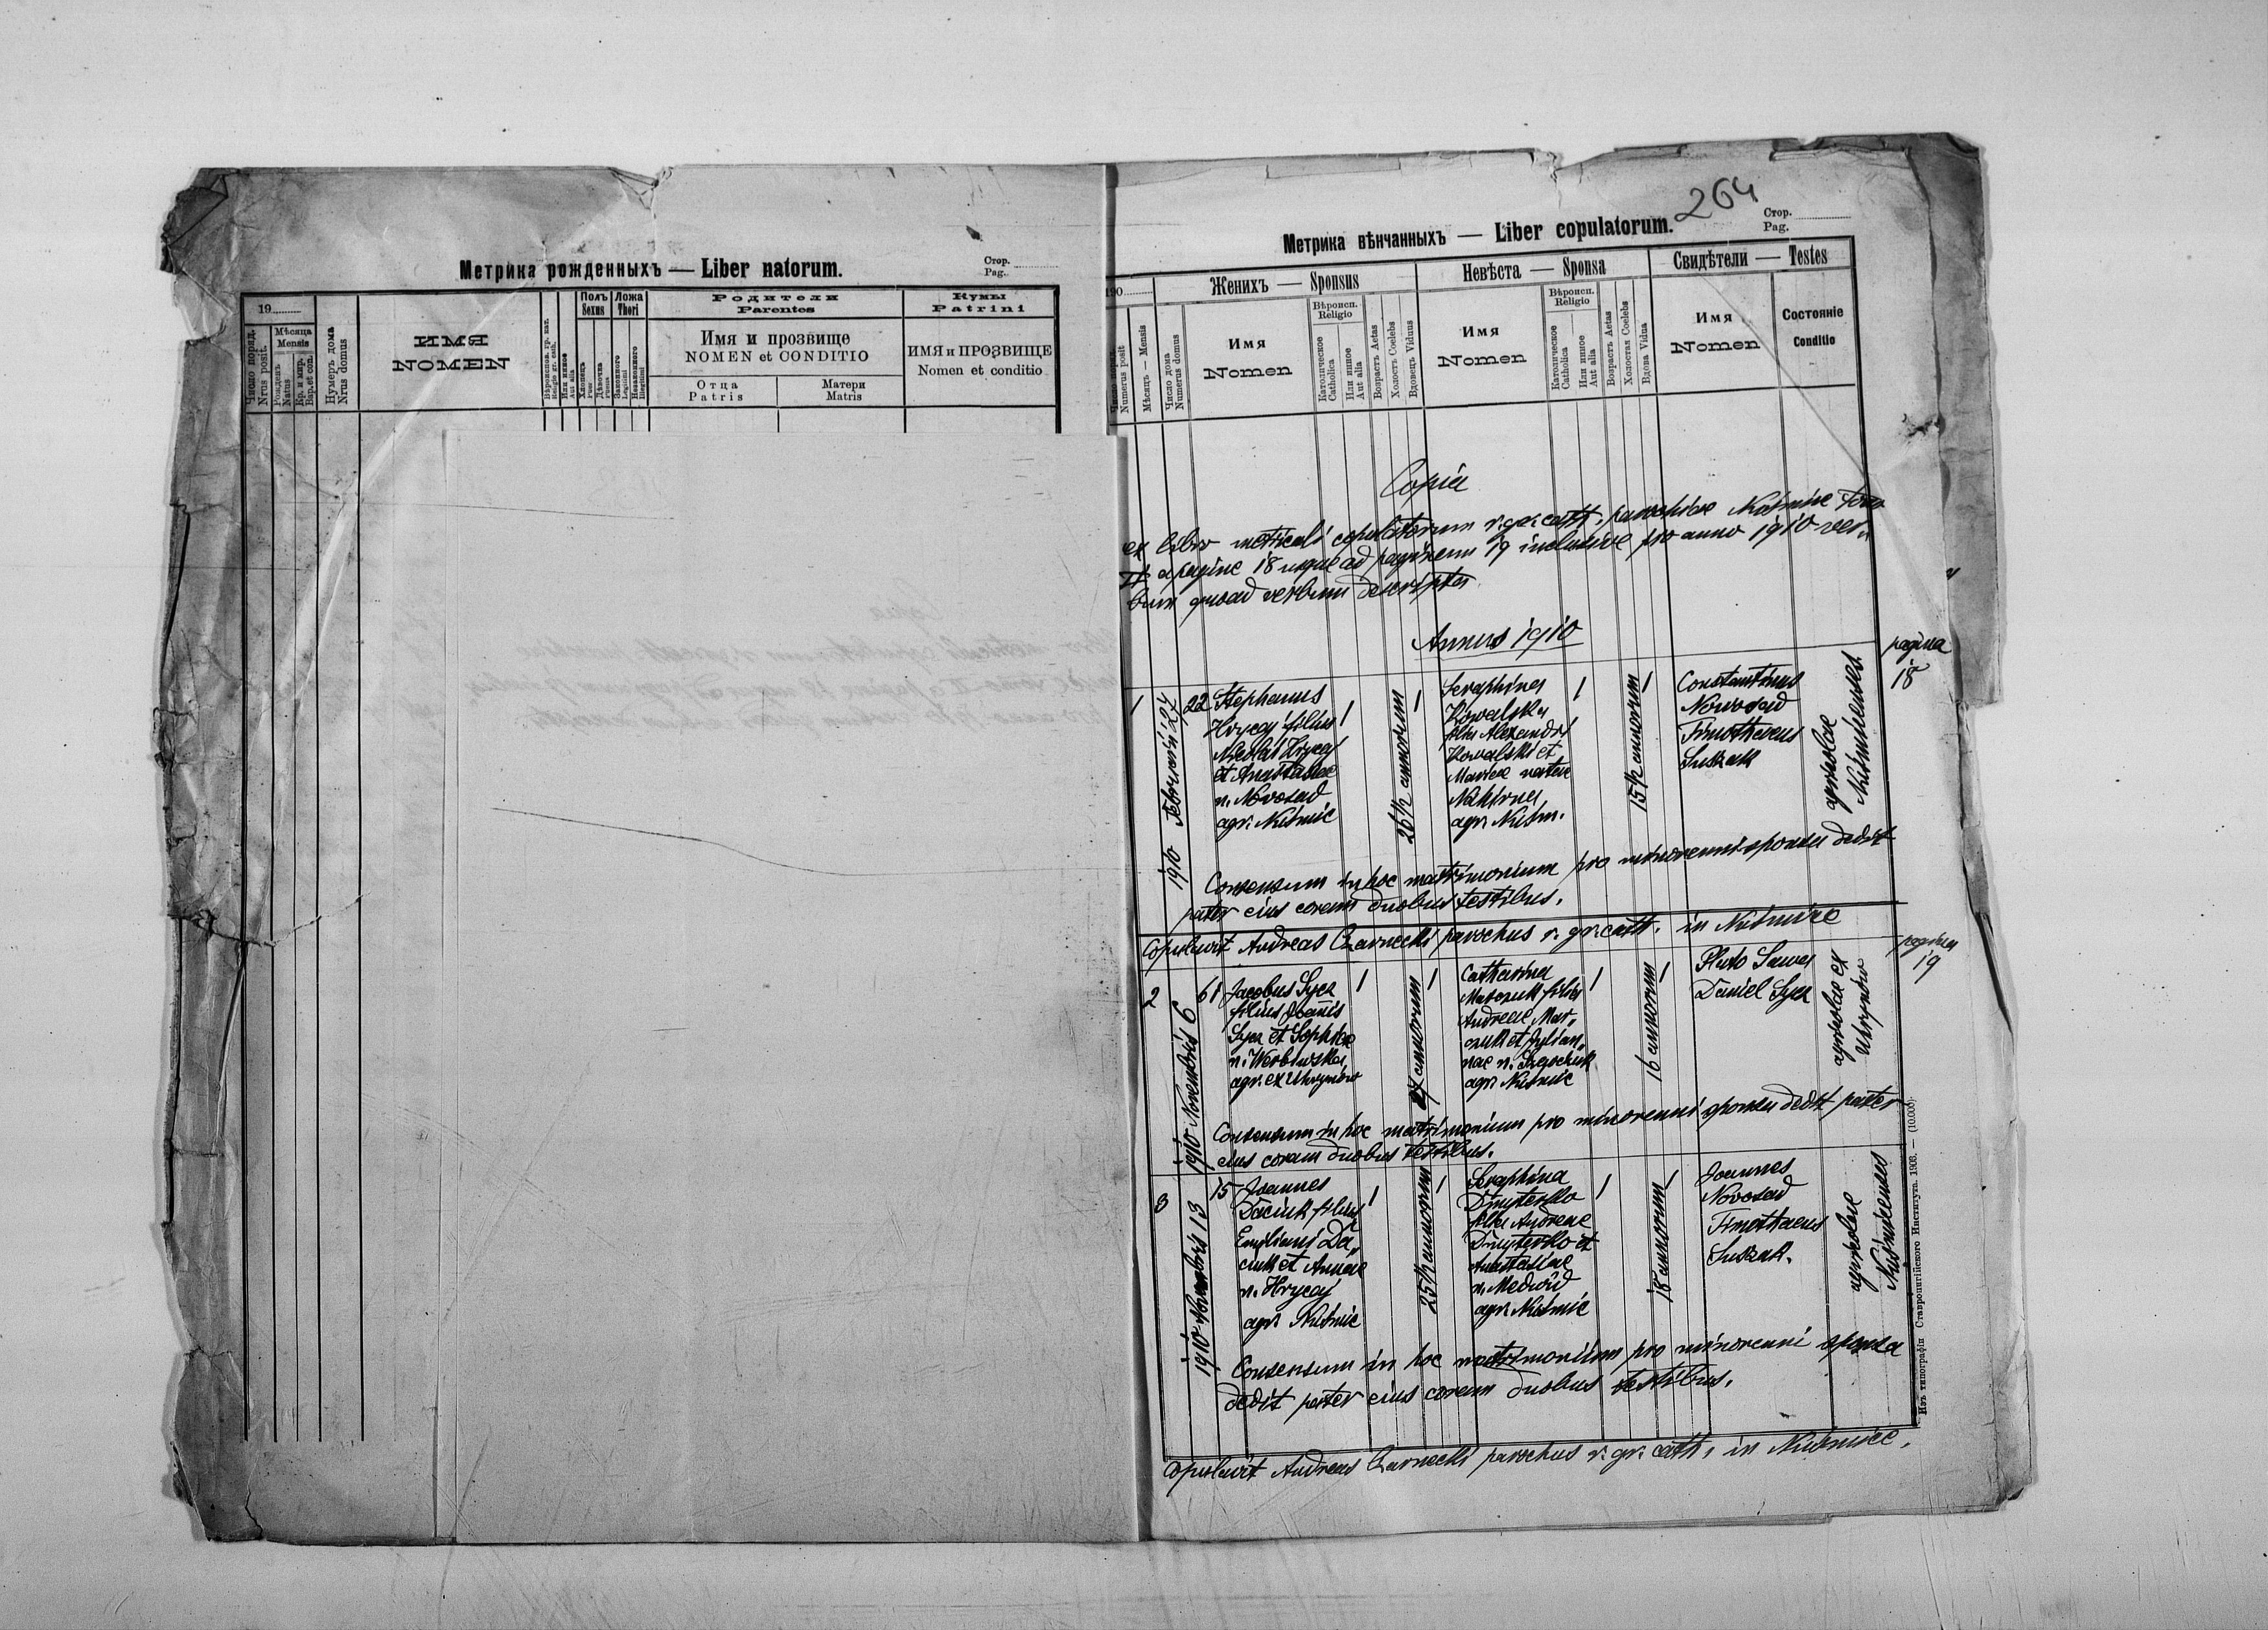 Метрика рожденныхъ — Liber natorum.
Стор.
Pag.
19
Число поряд.
Nrus posit.
Мѣсяца
Mensis
Рожденъ
Natus
Кр. и мир.
Bap. et con.
Нумеръ дома
Nrus domus
ИМЯ
NOMEN
Или инное
Aut alia
Полъ
Sexus
Хлопець
Puer
Дѣвочка
Ложа
Thori
Законного
Legitimi
Незаконного
Illegitimi
Родители
Parentes
Имя и прозвище
NOMEN et CONDITIO
Отца
Patris
Матери
Matris
Кумы
Patrini
ИМЯ и ПРОЗВИЩЕ
Nomen et conditio
264
Метрика вѣнчанныхъ — Liber copulatorum.
Стор.
Pag.
190
Число поряд.
Numerus posit
Мѣсяцъ — Mensis
Число дома
Numerus domus
Женихъ — Sponsus
Имя
Nomen
Вѣроисп.
Religio
Католическое
Catholica
Или инное
Aut alia
Возрастъ Aetas
Холостъ Coelebs
Вдовецъ Viduus
Невѣста — Sponsa
Имя
Nomen
Вѣроисп.
Religio
Католическое
Catholica
Или инное
Aut alia
Возрастъ Aetas
Холостая Coelebs
Вдова Vidua
Свидѣтели — Testes
Имя
Nomen
Состояніе
Conditio
Copia
ex libro metricali copulatorum r. gr. cath. parochiae Nuśmice Tomo
II a pagina 18 usque ad paginam 19 inclusive pro anno 1910 ver„
bum quoad verbum descripta
Annus 1910
pagina
18
1
1910 Februarii 27
22
Stephanus
Hrycaj filius
Nicolai Hrycaj
et Anastasiae
n. Novosad
agr. Nuśmic
1
26 1/2 annorum
1
Seraphina
Kowalska
filia Alexandri
Kowalski et
Mariae natae
Nakirna
agr. Nuśm.
1
15 1/2 annorum
1
Constantinus
Nowosad
Timotheus
Suszak
agricolae
Nuśmicenses
Consensum in hoc matrimonium pro minorenni sponsa dedit
pater eius coram duobus testibus.
Copulavit Andreas Czarnecki parochus r. gr. cath. in Nuśmice
pagina
19
2
1910 Novembris 6
61
Jacobus Sycz
filius Joannis
Sycz et Sophiae
n. Werbowska
agr. ex Uhrynow
1
27 annorum
1
Catharina
filia
Andreae Mar„
et Julian„
nae n.
agr. Nuśmic
1
16 annorum
1
Pluto Sawa
Daniel Sycz
agricolae ex
Uhrynow
Consensum in hoc matrimonium pro minorenni sponsa dedit pater
eius coram duobus testibus.
3
1910 Novembris 13
15
Joannes
Daciuk filius
Emiliani Da„
ciuk et Annae
n. Hrycaj
agr. Nuśmic
1
25 1/2 annorum
1
Seraphina
Dmyterko
filia Andreae
Dmyterko et
Anastasiae
n. Medwid
agr. Nuśmic
1
18 annorum
1
Joannes
Novosad
Timothaeus
Suszak.
agricolae
Nuśmicenses
Consensum in hoc matrimonium pro minorenni sponsa
dedit pater eius coram duobus testibus.
Copulavit Andreas Czarnecki parochus r. gr. cath. in Nuśmice.
Изъ типографіи Ставропигійского Института. 1908. — (10.000)